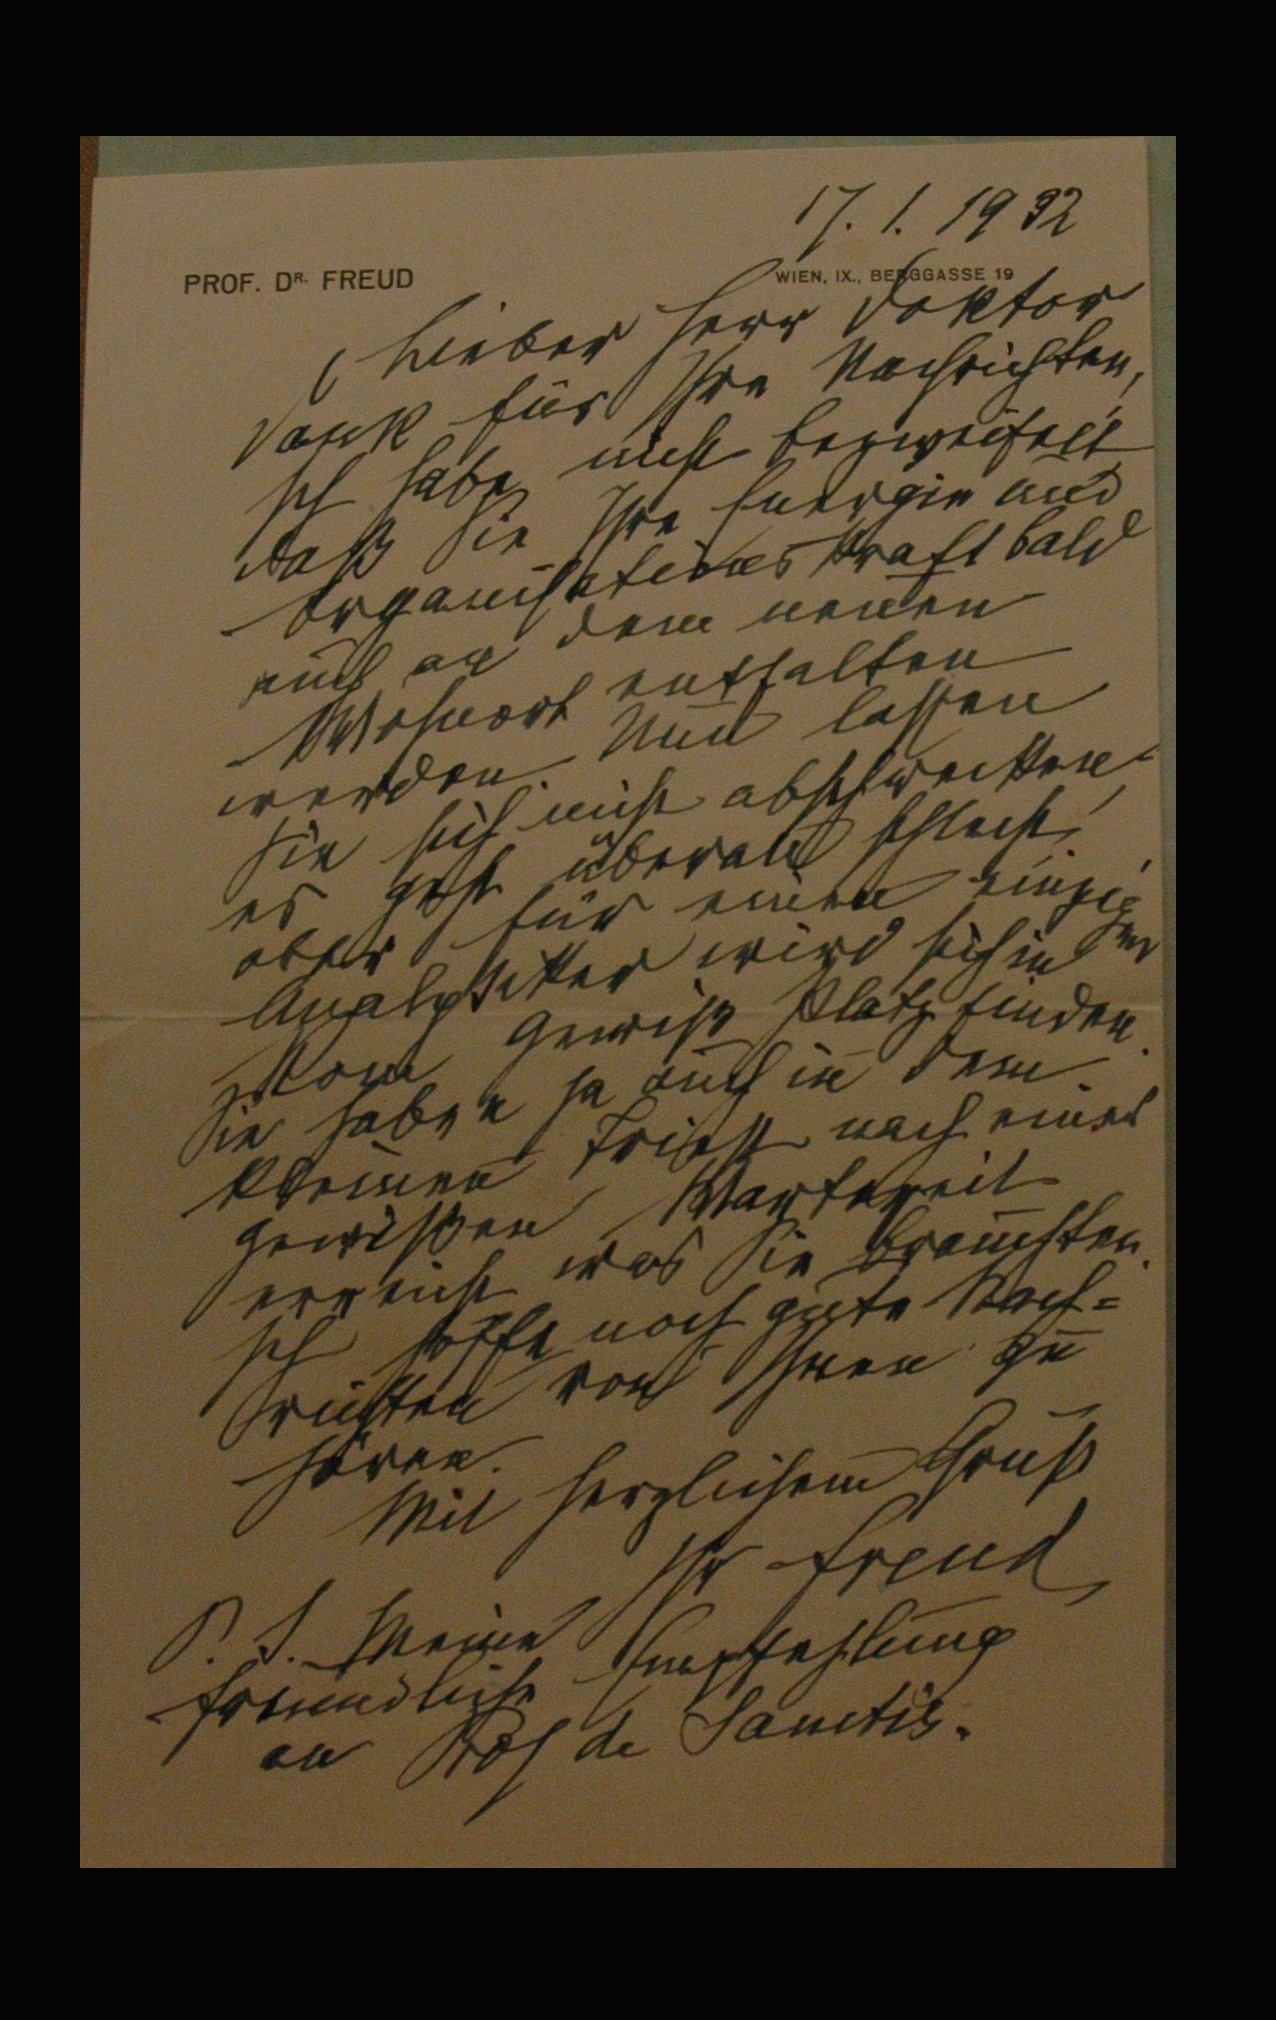 17. 1. 1932
PROF. DR. FREUD
WIEN, IX., BERGGASSE 19
Lieber Herr Doktor
Dank für Ihre Nachrichten,
Ich habe nicht bezweifelt
daß Sie Ihre Energie und
Organisationskraft bald
auch an dem neuen
Wohnort entfalten
werden. Nun lassen
Sie sich nicht abschrecken,
es geht überall schlecht,
aber für einen einzigen
Analytiker wird sich in
Rom gewiß Platz finden.
Sie haben ja auch in dem
kleinen Triest nach einer
gewißen Wartezeit
erreicht was Sie brauchten.
Ich hoffe noch gute Nach=
richten von Ihnen zu
hören.
Mit herzlichem Gruß
Ihr Freud
P. S. Meine
freundliche Empfehlung
an Prof de Sanctis.